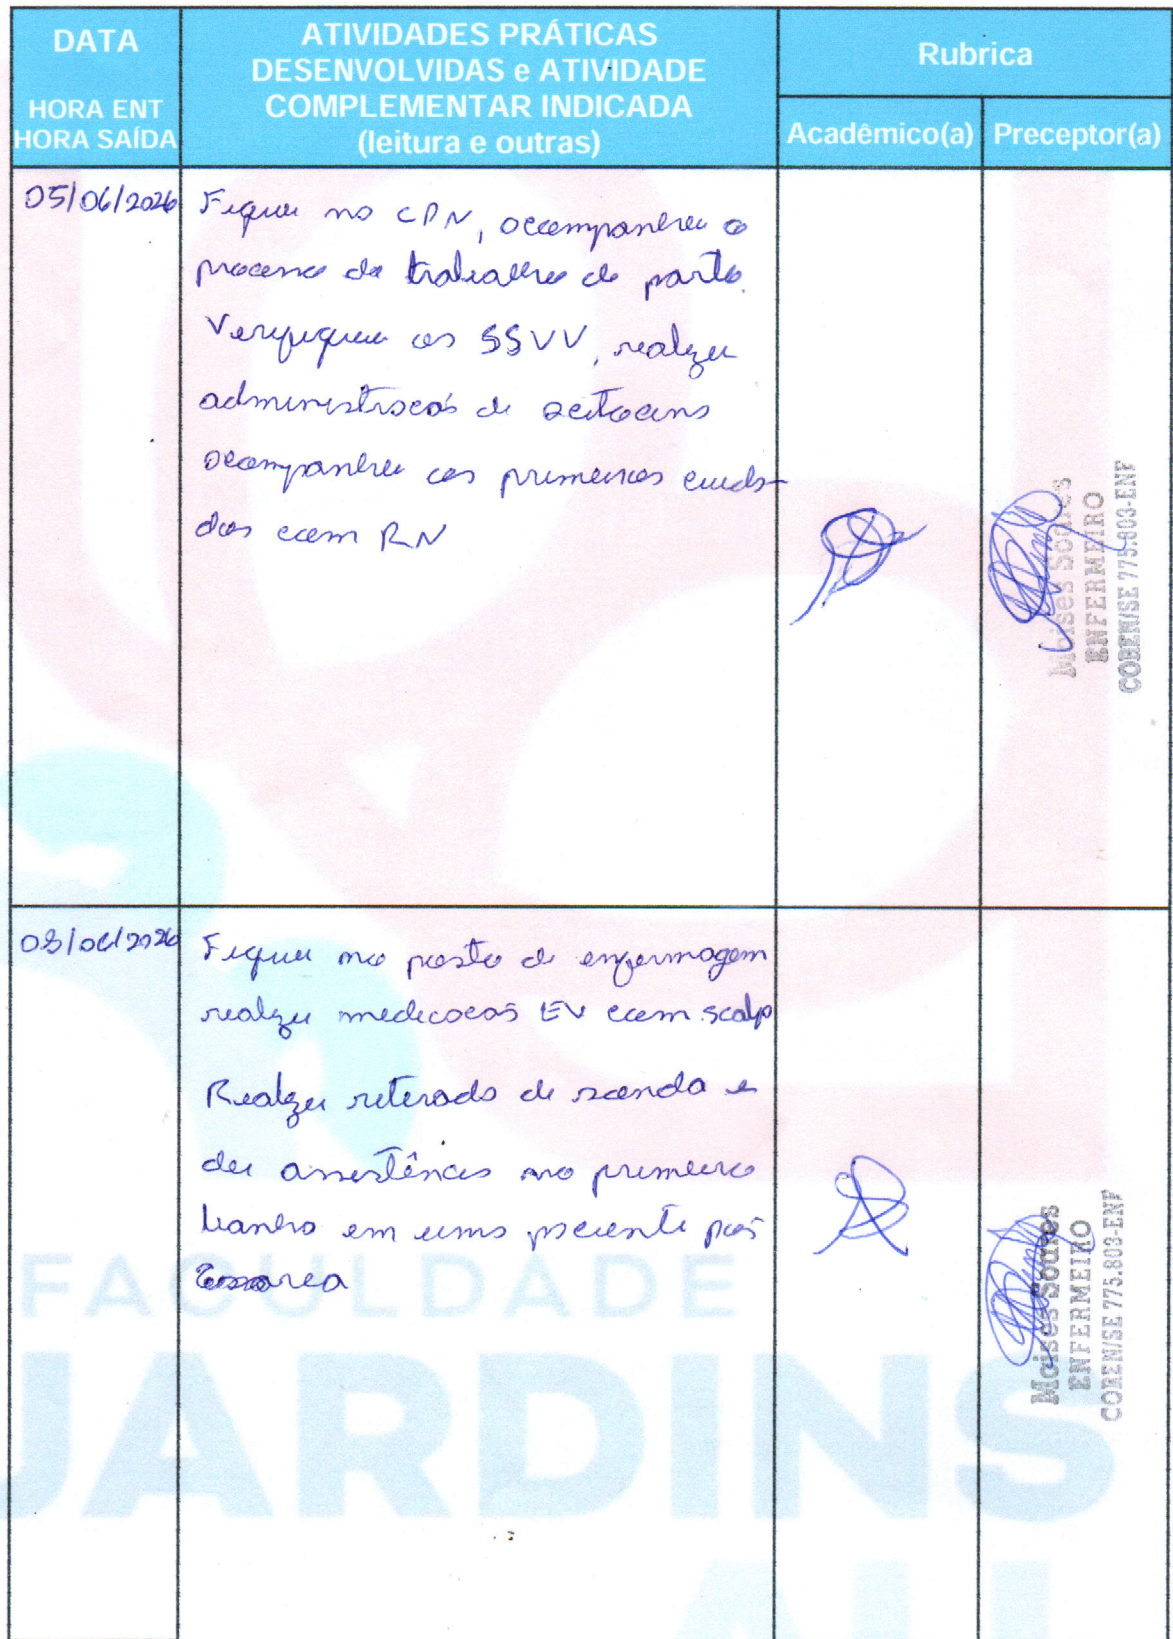 DATA
HORA ENT
HORA SAÍDA
ATIVIDADES PRÁTICAS
DESENVOLVIDAS e ATIVIDADE
COMPLEMENTAR INDICADA
(leitura e outras)
Rubrica
Acadêmico(a)
Preceptor(a)
05/06/2026
Fiquei no CPN, acompanhei o
processo de trabalho de parto.
Verifiquei os SSVV, realizei
administração de ocitocina
acompanhei os primeiros cuida-
dos com RN
Moises Soares
ENFERMEIRO
COREN/SE 775.803-ENF
08/06/2026
Fiquei no posto de enfermagem
realizei medicação EV com scalp
Realizei retirada de sonda e
dei assistência no primeiro
banho em uma paciente pós
Cesarea
Moises Soares
ENFERMEIRO
COREN/SE 775.803-ENF
FACULDADE
JARDINS